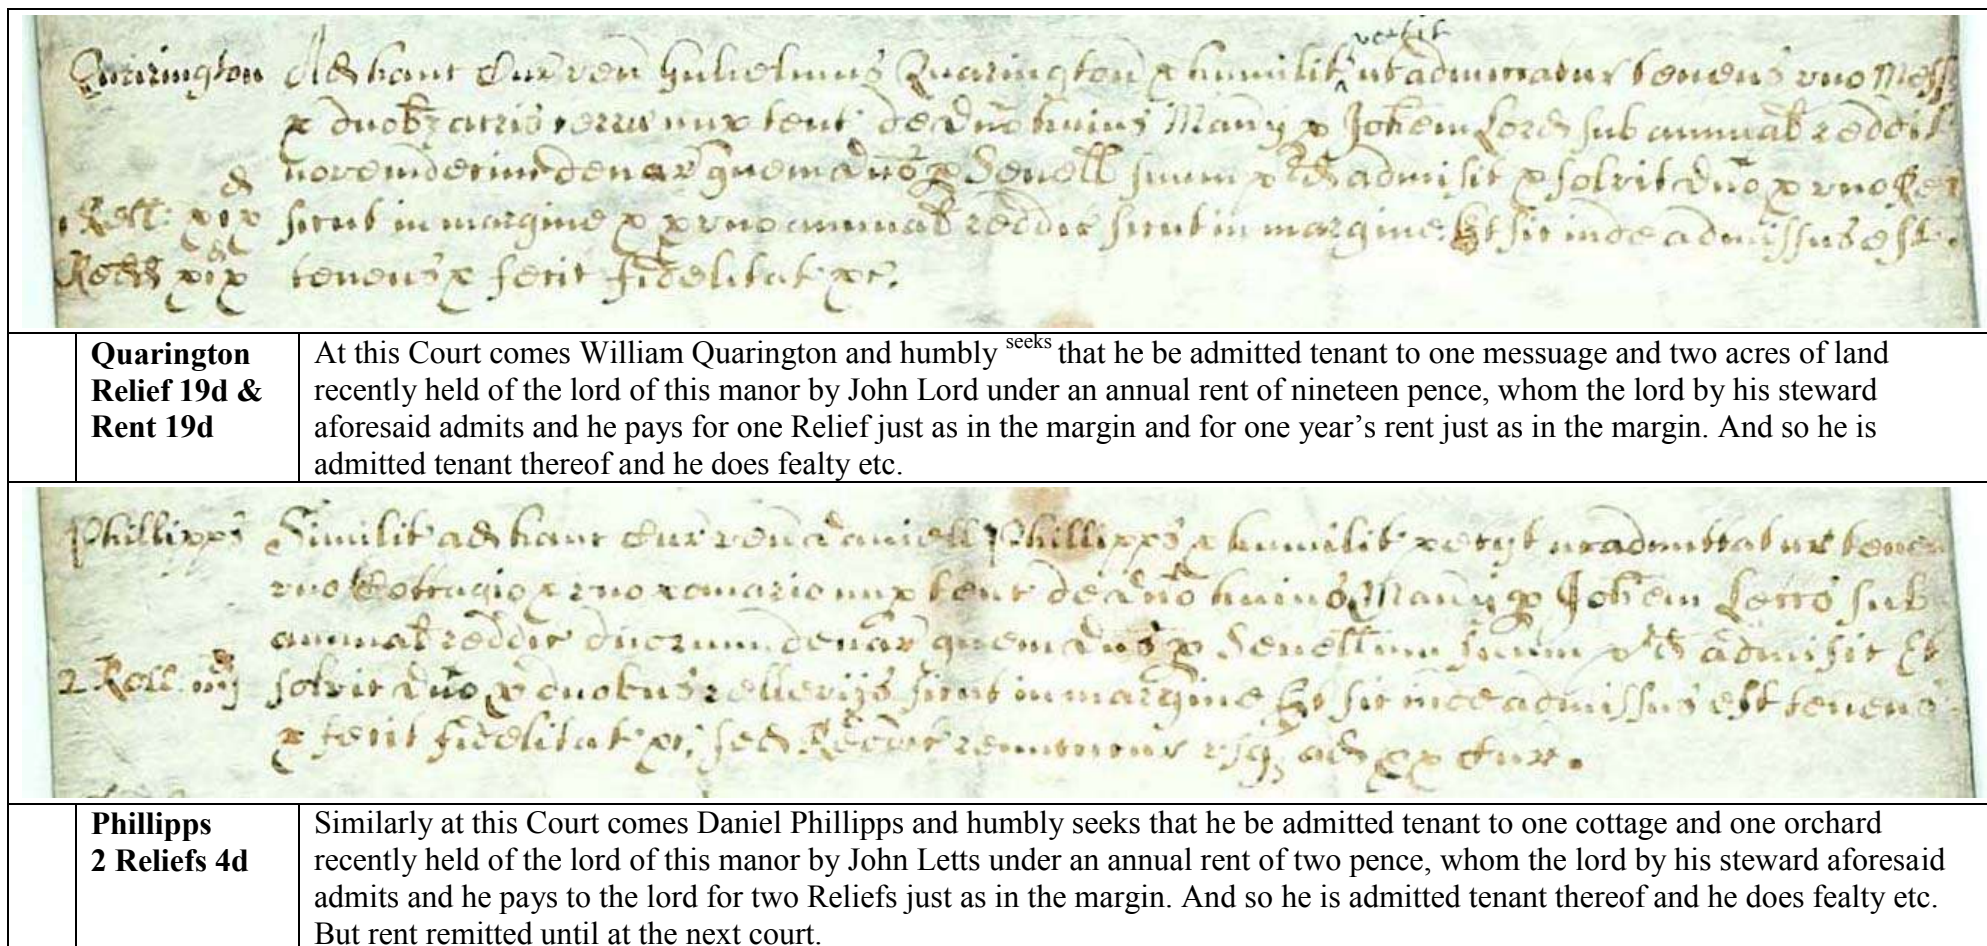 petit
Quarington Ad hanc Cur ven Gulielmus Quarington & humilit ut admittatur tenens uno Mess
& duobz acris terre nup tent de Dno huius Manij p Johem Lord sub annual reddit
novemdecim denar quem Dns p Senell suum p d admisit & solvit Dno p uno Rel
d
1 Rell: xix sicut in margine & p uno annual reddit sicut in margine Et sic inde admissus est
d
Redd xix tenens & fecit fidelitat &c.
Quarington
Relief 19d &
Rent 19d
At this Court comes William Quarington and humbly seeks that he be admitted tenant to one messuage and two acres of land
recently held of the lord of this manor by John Lord under an annual rent of nineteen pence, whom the lord by his steward
aforesaid admits and he pays for one Relief just as in the margin and for one year’s rent just as in the margin. And so he is
admitted tenant thereof and he does fealty etc.
Phillipps Similit ad hanc Cur ven Daniell Phillipps & humilit petijt ut admittatur tenen
uno Cottagio & uno pomario nup tent de Dno huius Manij p Johem Letts sub
annual reddit duorum denar quem Dns p Senellum suum p d admisit Et
d
2 Rell. iiij solvit Dno p duobus rellevijs sicut in margine Et sic inde admissus est tenens
& fecit fidelitat &c; sed Reddit remittitur usq ad px Cur.
Phillipps
2 Reliefs 4d
Similarly at this Court comes Daniel Phillipps and humbly seeks that he be admitted tenant to one cottage and one orchard
recently held of the lord of this manor by John Letts under an annual rent of two pence, whom the lord by his steward aforesaid
admits and he pays to the lord for two Reliefs just as in the margin. And so he is admitted tenant thereof and he does fealty etc.
But rent remitted until at the next court.